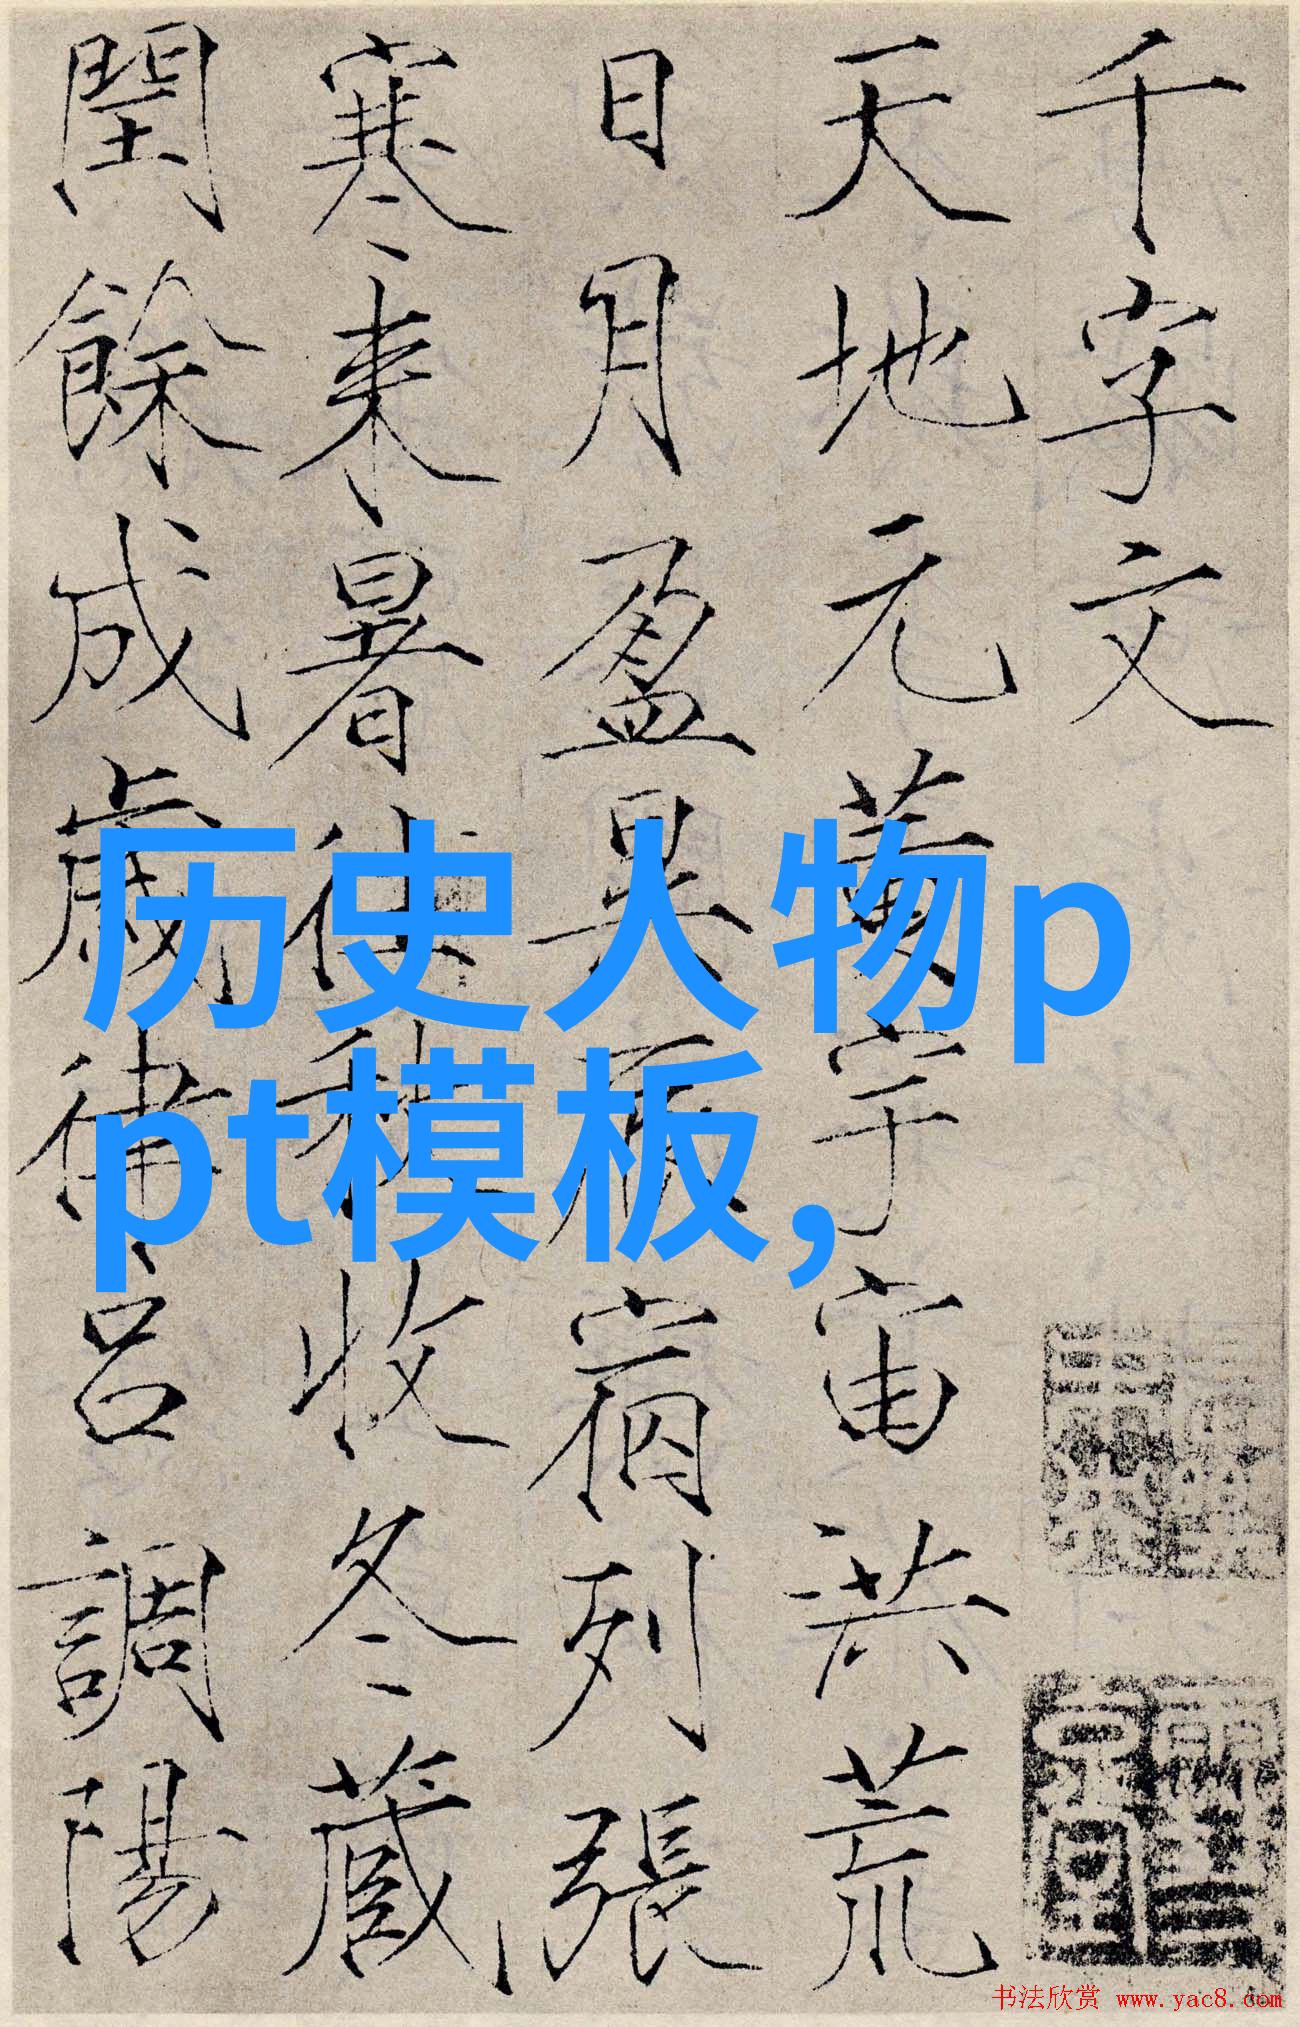 千字文
天地元黄宇宙洪荒
日月盈昃辰宿列張
寒来暑往秋收冬藏
閏餘成歲律呂調陽
历史人物p
pt模板,
书法欣赏 www.yac8.com